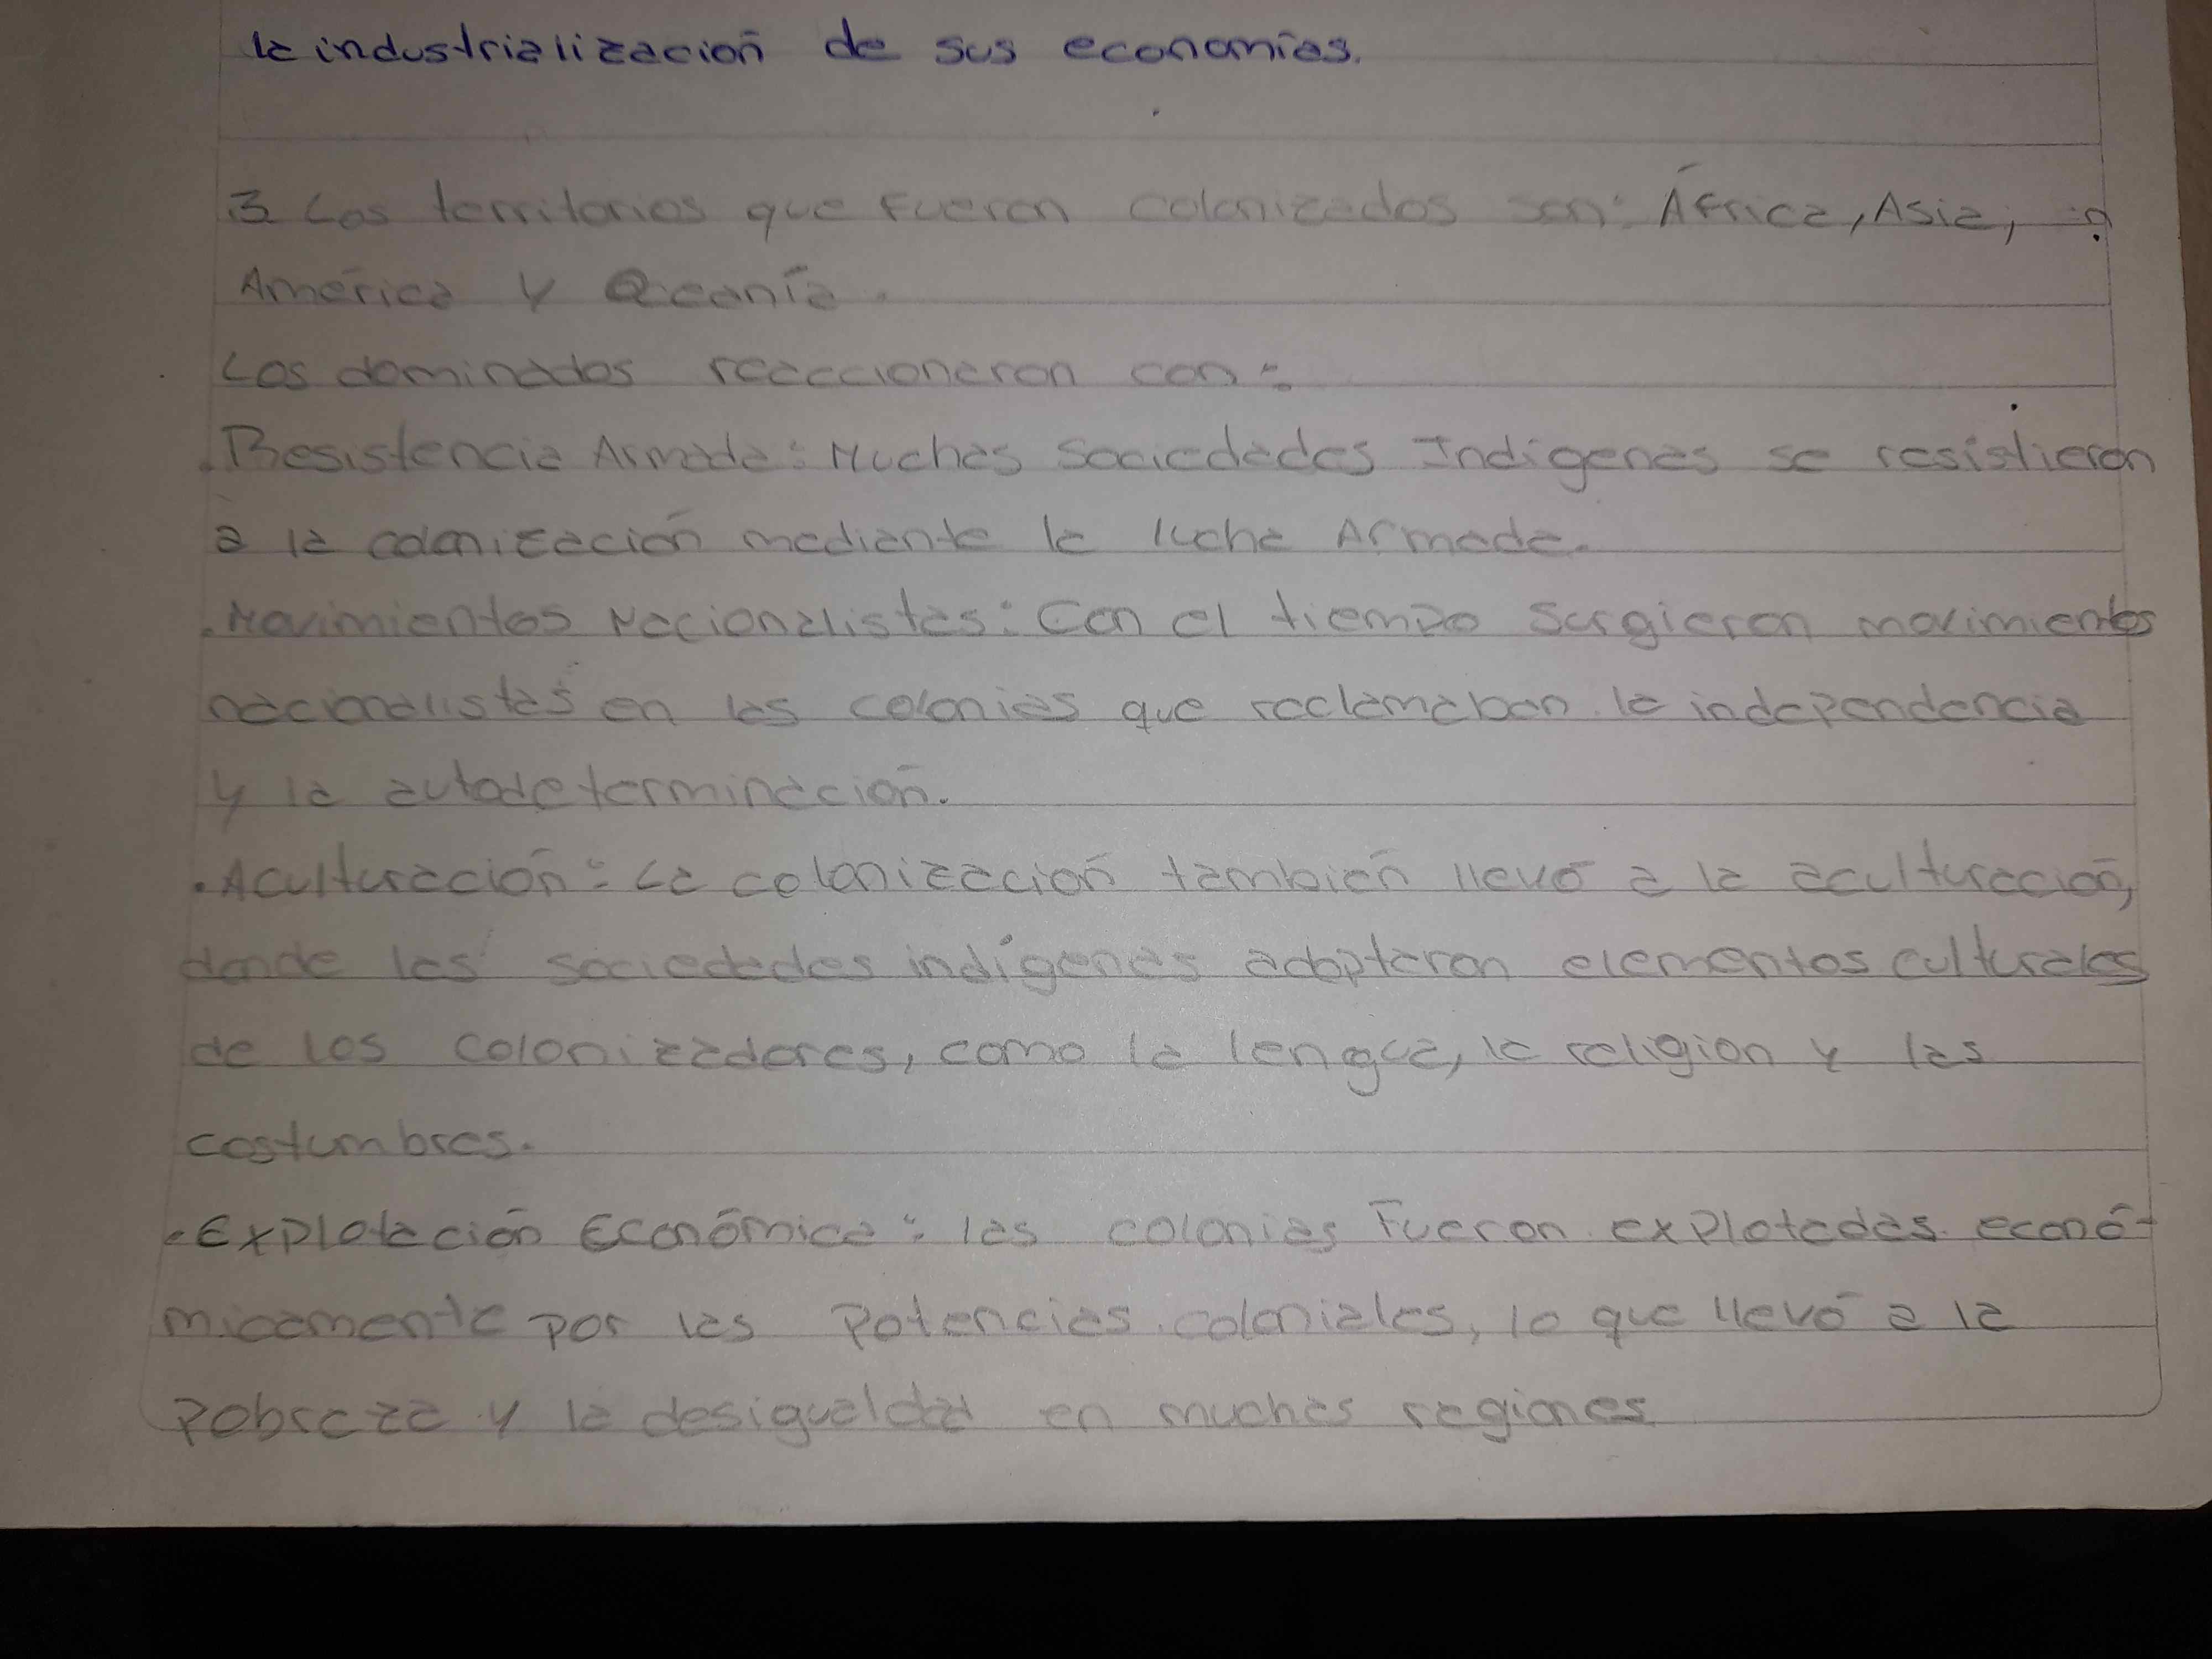 la industrialización de sus economías.
3 Los territorios que fueron colonizados son: África, Asia,
América y Oceanía.
Los dominados reaccionaron con:
.Resistencia Armada: Muchas Sociedades Indígenas se resistieron
a la colonización mediante la lucha Armada.
.Movimientos Nacionalistas: Con el tiempo surgieron movimientos
nacionalistas en las colonias que reclamaban la independencia
y la autodeterminación.
.Aculturación: La colonización también llevó a la aculturación,
donde las sociedades indígenas adoptaron elementos culturales
de los colonizadores, como la lengua, la religion y las
costumbres.
.Explotación Económica: las colonias Fueron explotadas econó-
micamente por las Potencias coloniales, lo que llevó a la
Pobreza y la desigualdad en muchas regiones